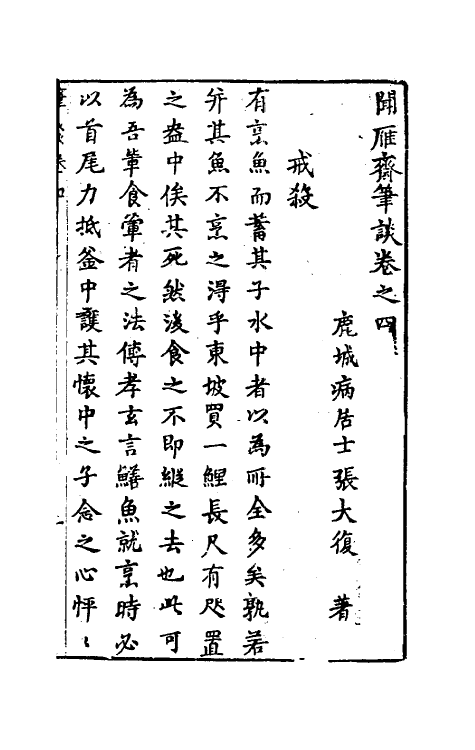 聞雁齋筆談卷之四
鹿城病居士張大復 著
戒殺
有烹魚而蓄其子水中者以為所全多矣孰若
并其魚不烹之淂乎東坡買一鯉長尺有咫置
之盎中俟其死然後食之不即縱之去也此可
為吾輩食葷者之法傅孝玄言鱔魚就烹時必
以首尾力抵釜中護其懷中之子念之心怦〻